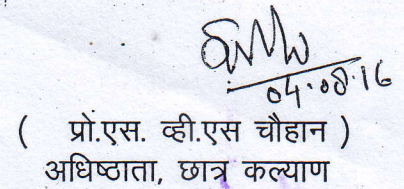 04.08.16
( प्रो.एस. व्ही.एस चौहान )
अधिष्ठाता, छात्र कल्याण